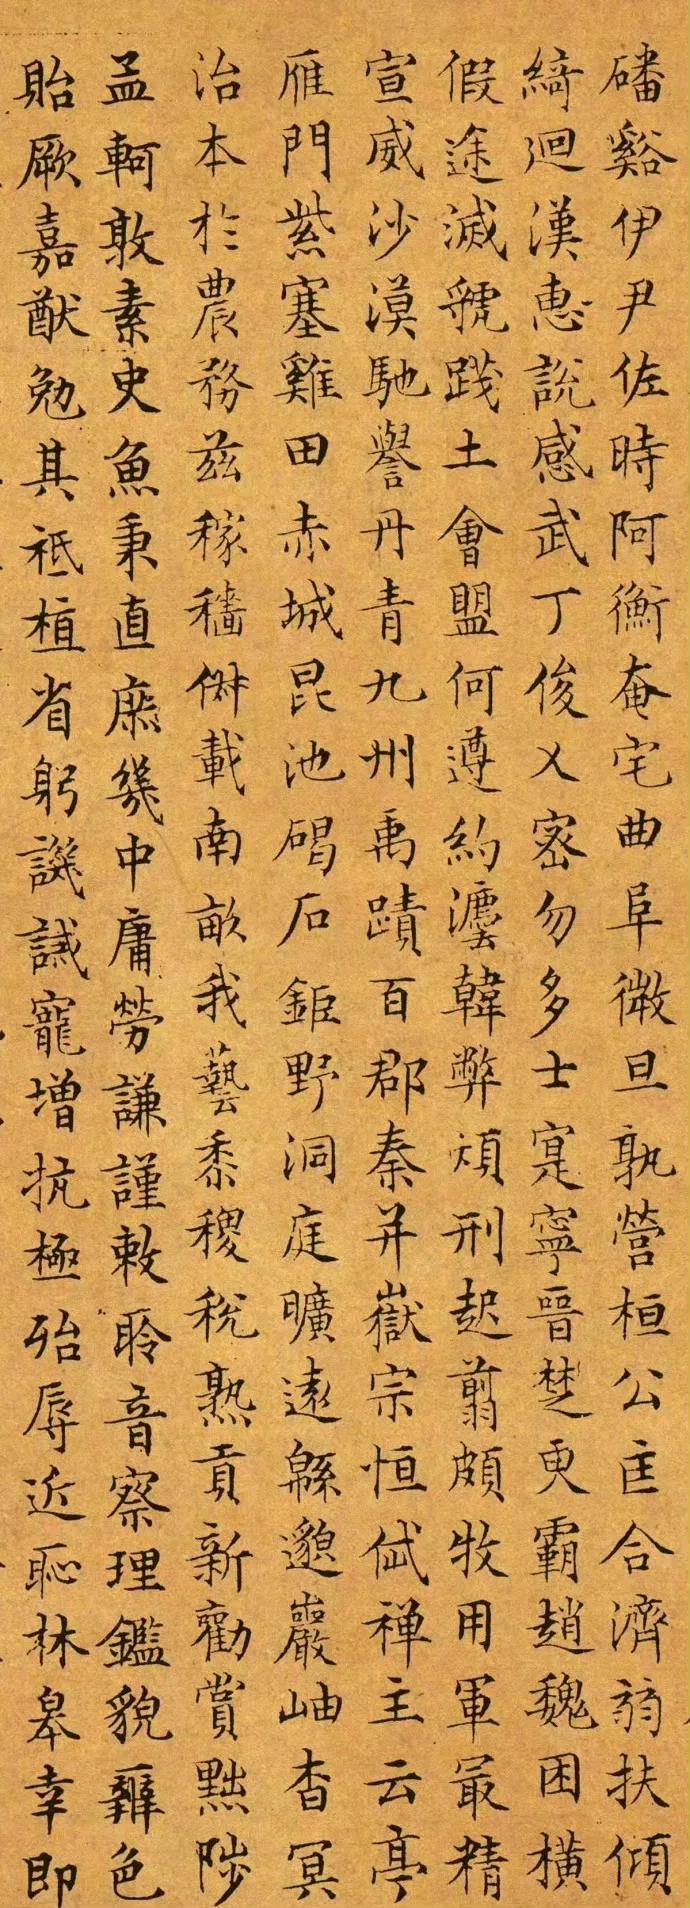 磻谿伊尹佐時阿衡奄宅曲阜微旦孰營桓公匡合濟弱扶傾
綺迴漢惠說感武丁俊乂密勿多士寔寧晉楚更霸趙魏困橫
假途滅虢踐土會盟何遵約灋韓弊煩刑起翦頗牧用軍最精
宣威沙漠馳譽丹青九州禹蹟百郡秦并嶽宗恒岱禅主云亭
雁門紫塞雞田赤城昆池碣石鉅野洞庭曠遠緜邈巖岫杳冥
治本於農務茲稼穡俶載南畝我藝黍稷稅熟貢新勸賞黜陟
孟軻敦素史魚秉直庶幾中庸勞謙謹敕聆音察理鑑貌辨色
貽厥嘉猷勉其祗植省躬譏誡寵增抗極殆辱近恥林皋幸即